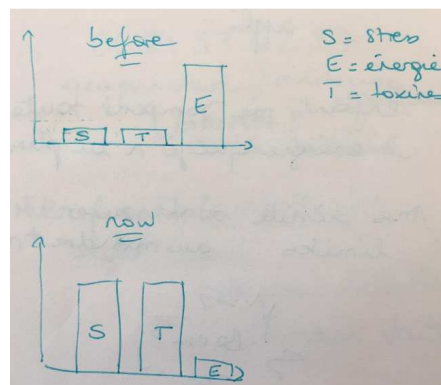 before
S = Stress
E = énergie
T = toxines
S T E
now
S T E